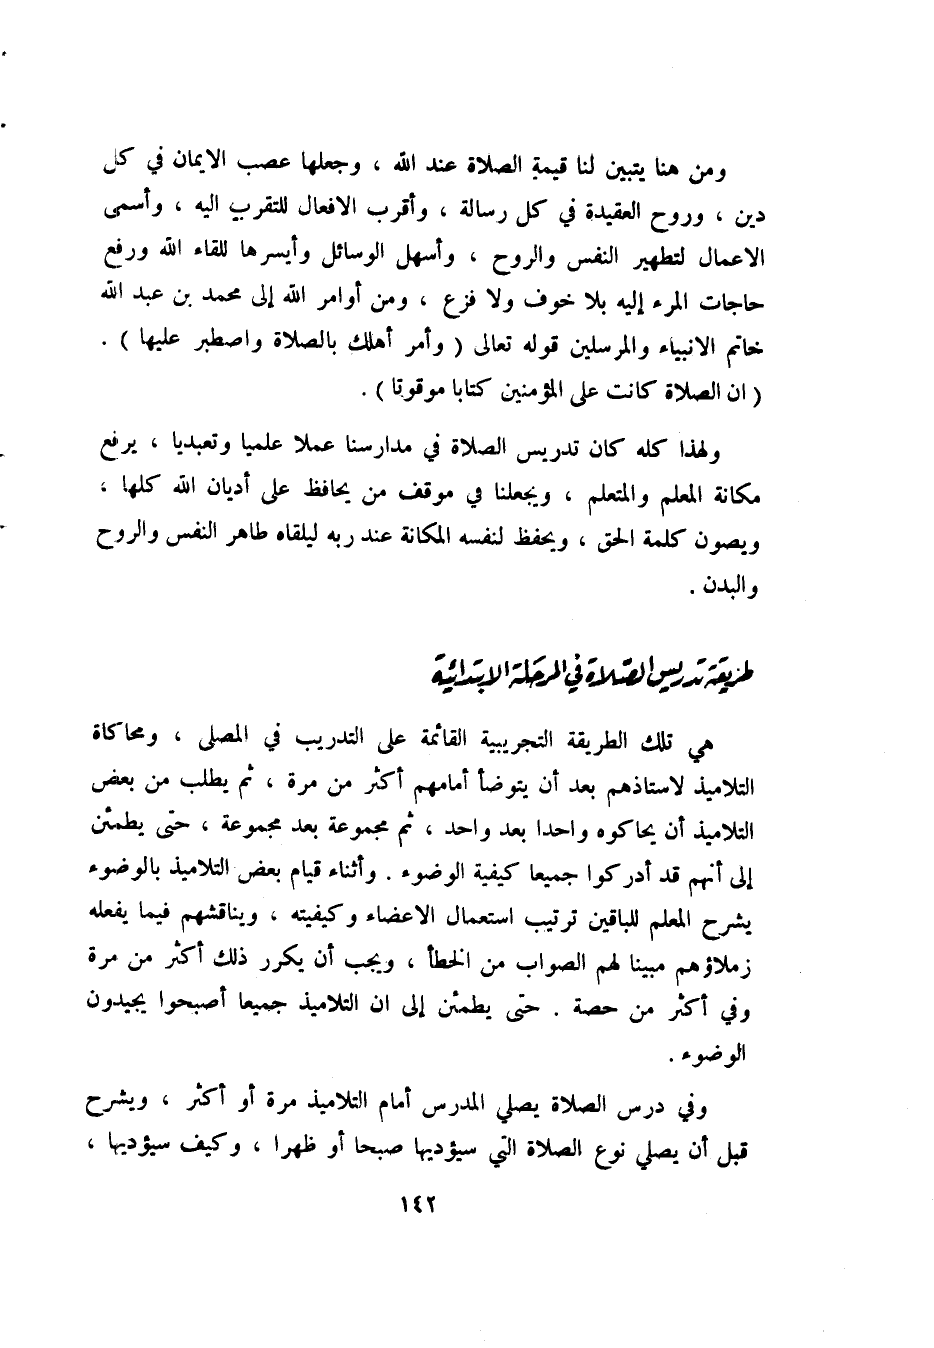 ومن هنا يتبين لنا قيمة الصلاة عند الله ، وجعلها عصب الايمان في كل
دين ، وروح العقيدة في كل رسالة ، وأقرب الافعال للتقرب اليه ، وأسمى
الاعمال لتطهير النفس والروح ، وأسهل الوسائل وأيسرها للقاء الله ورفع
حاجات المرء إليه بلا خوف ولا فزع ، ومن أوامر الله إلى محمد بن عبد الله
خاتم الانبياء والمرسلين قوله تعالى ( وأمر أهلك بالصلاة واصطبر عليها ) .
( ان الصلاة كانت على المؤمنين كتابا موقوتا ) .
ولهذا كله كان تدريس الصلاة في مدارسنا عملا علميا وتعبديا ، يرفع
مكانة المعلم والمتعلم ، ويجعلنا في موقف من يحافظ على أديان الله كلها ،
ويصون كلمة الحق ، ويحفظ لنفسه المكانة عند ربه ليلقاه طاهر النفس والروح
والبدن .
طريقة تدريس الصلاة في المرحلة الابتدائية
هي تلك الطريقة التجريبية القائمة على التدريب في المصلى ، ومحاكاة
التلاميذ لاستاذهم بعد أن يتوضأ أمامهم أكثر من مرة ، ثم يطلب من بعض
التلاميذ أن يحاكوه واحدا بعد واحد ، ثم مجموعة بعد مجموعة ، حتى يطمئن
إلى أنهم قد أدركوا جميعا كيفية الوضوء . وأثناء قيام بعض التلاميذ بالوضوء
يشرح المعلم للباقين ترتيب استعمال الاعضاء وكيفيته ، ويناقشهم فيما يفعله
زملاؤهم مبينا لهم الصواب من الخطأ ، ويجب أن يكرر ذلك أكثر من مرة
وفي أكثر من حصة . حتى يطمئن إلى ان التلاميذ جميعا أصبحوا يجيدون
الوضوء .
وفي درس الصلاة يصلي المدرس أمام التلاميذ مرة أو أكثر ، ويشرح
قبل أن يصلي نوع الصلاة التي سيؤديها صبحا أو ظهرا ، وكيف سيؤديها ،
١٤٢